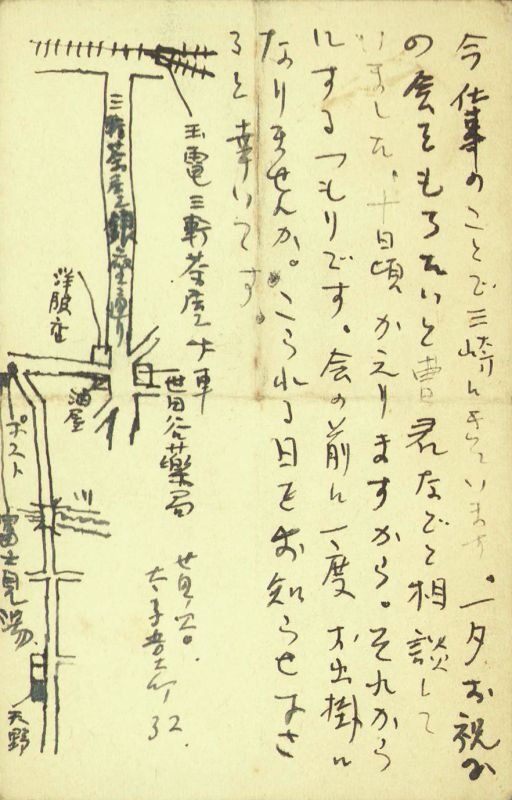 今仕事のことで三崎にきています。一夕お祝
の会をもちたいと曹君などと相談して
いました。十日頃かえりますから。それから
にするつもりです。会の前に一度お出掛に
なりませんか。こられる日をお知らせ下さ
ると幸いです。
玉電三軒茶屋下車
三軒茶屋銀座通り
洋服店
酒屋
世田谷薬局
ポスト
川
富士見湯
天野
世田谷区
太子堂
32